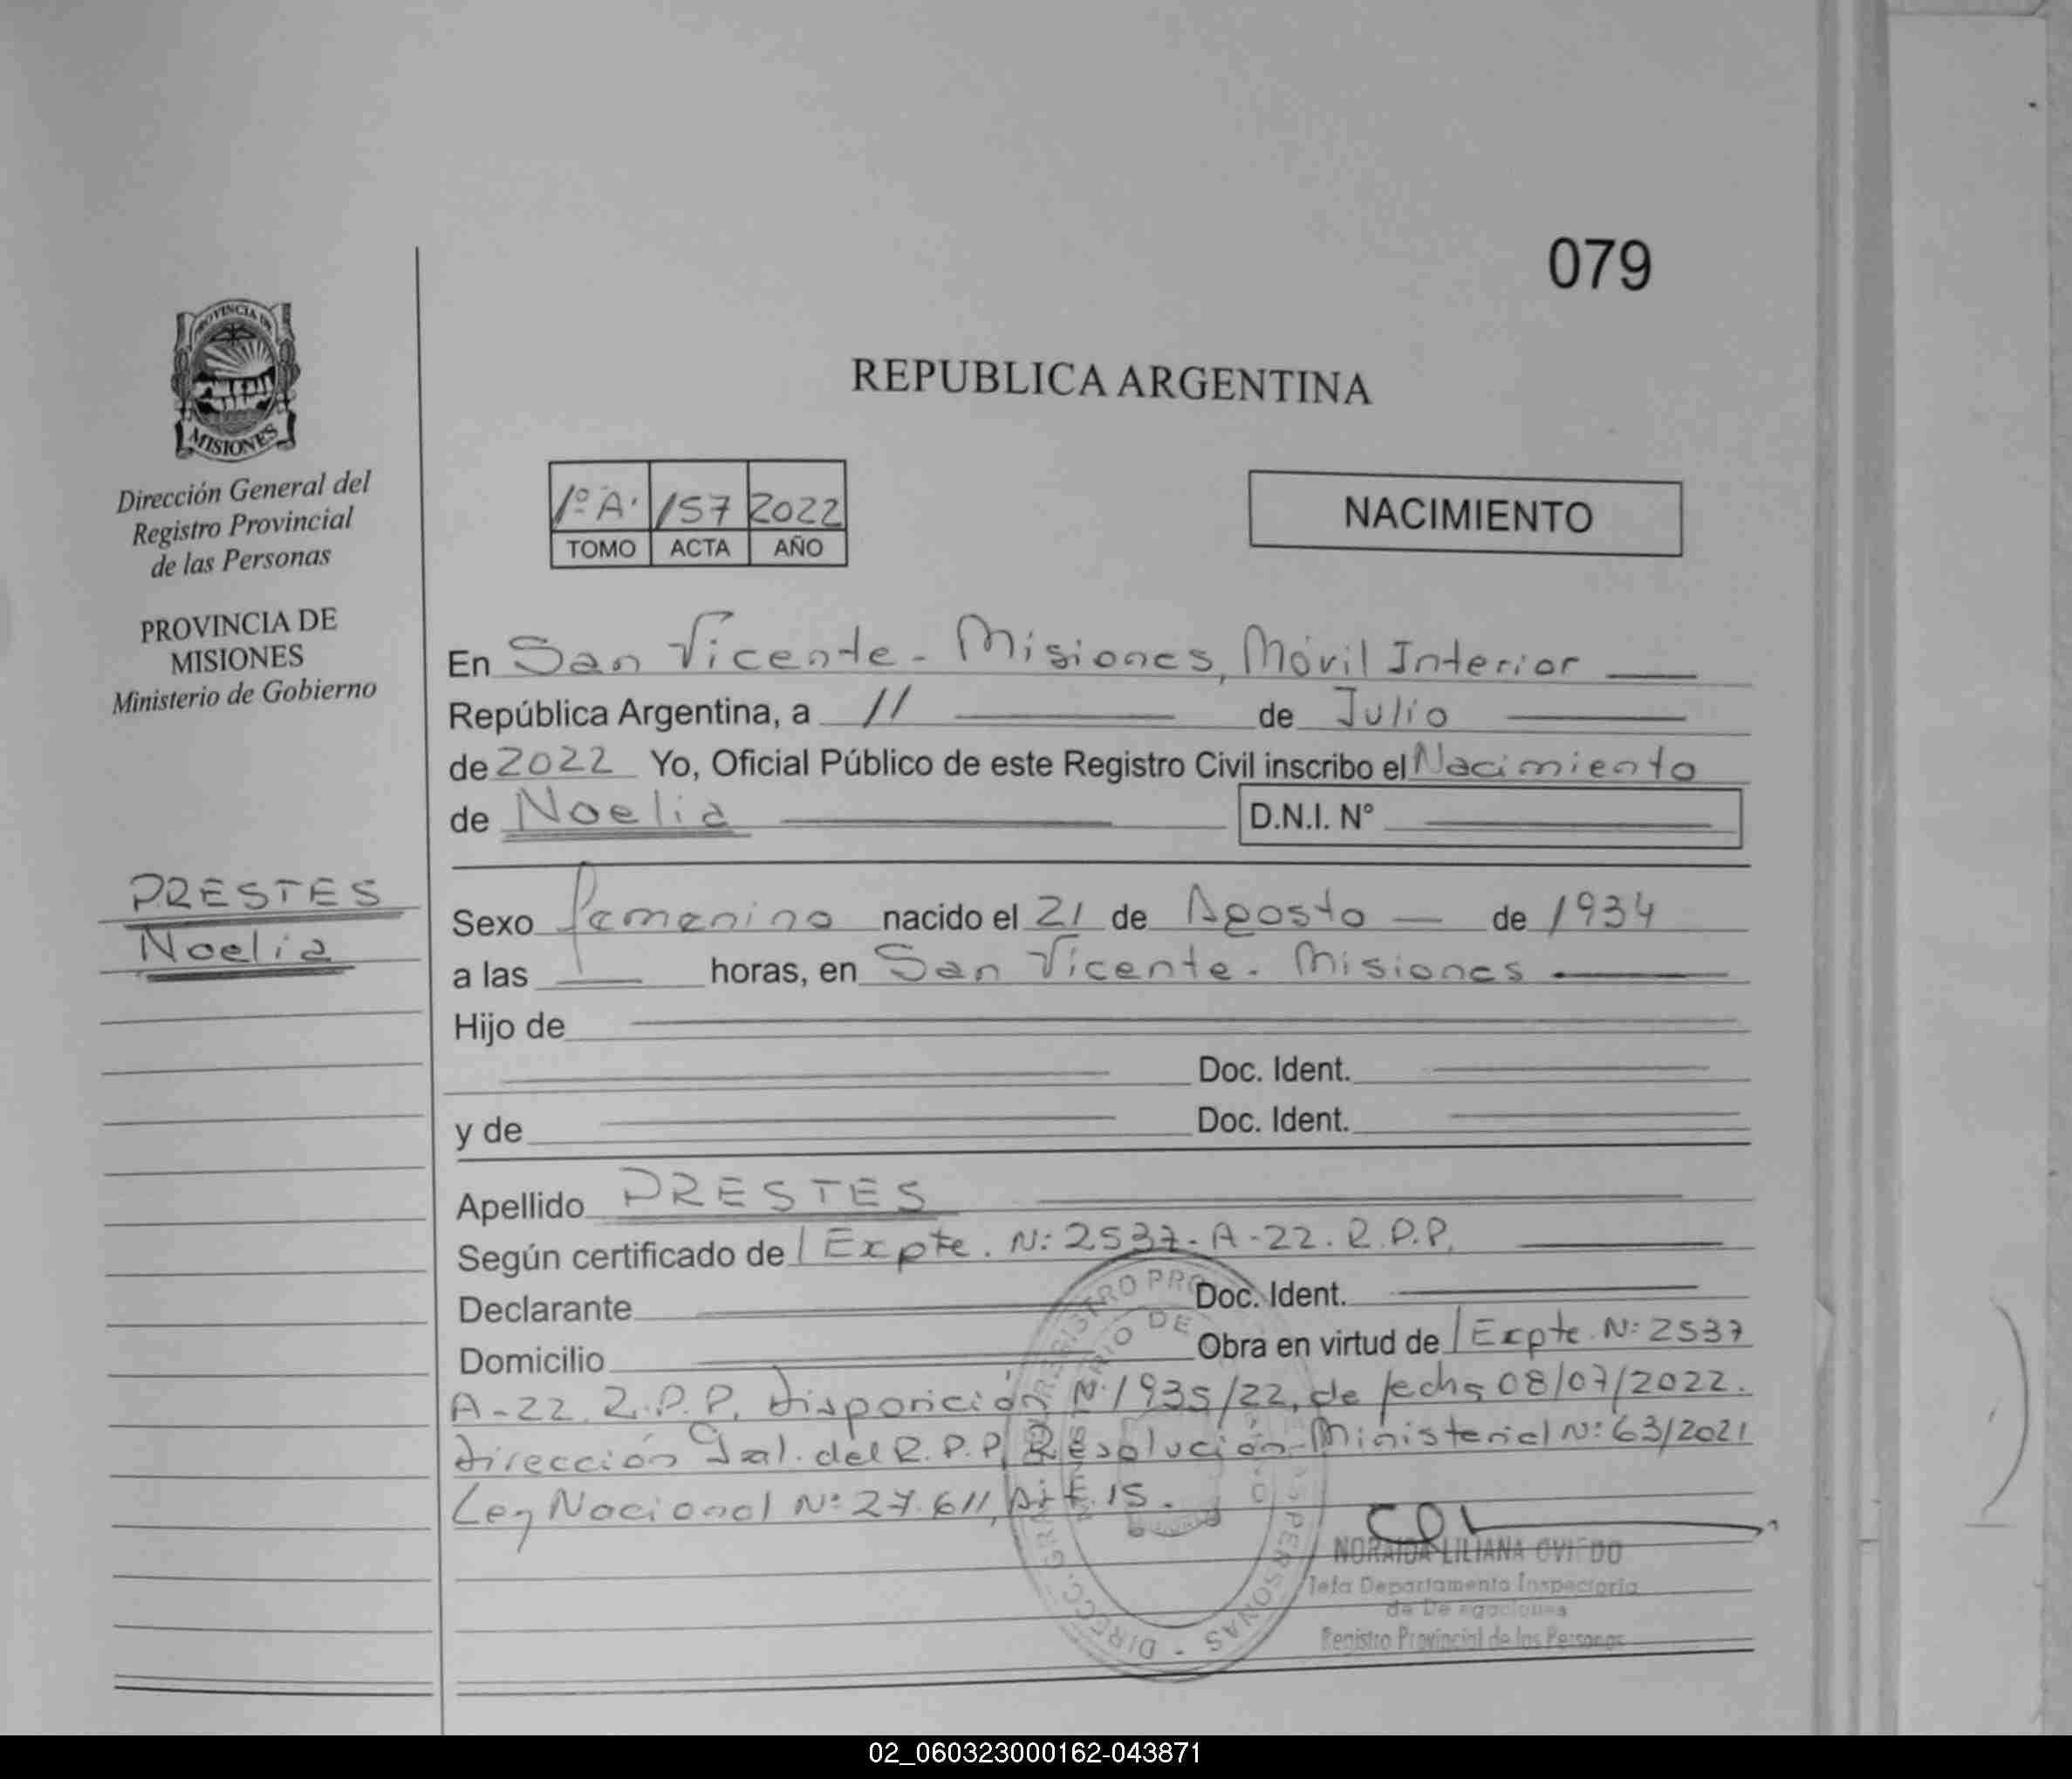 079
PROVINCIA DE
MISIONES
Dirección General del
Registro Provincial
de las Personas
PROVINCIA DE
MISIONES
Ministerio de Gobierno
PRESTES
Noelia
REPUBLICA ARGENTINA
1º A. 157 2022
TOMO ACTA AÑO
NACIMIENTO
En San Vicente - Misiones, Móvil Interior
República Argentina, a 11 de Julio
de 2022 Yo, Oficial Público de este Registro Civil inscribo el Nacimiento
de Noelia D.N.I. N°
Sexo femenino nacido el 21 de Agosto de 1934
a las horas, en San Vicente - Misiones
Hijo de
Doc. Ident.
y de Doc. Ident.
Apellido PRESTES
Según certificado de Expte. Nº 2537-A-22. R.P.P.
Declarante Doc. Ident.
Domicilio Obra en virtud de Expte. Nº 2537
A-22. R.P.P. Disposición Nº 1935/22, de fecha 08/07/2022.
Dirección Gral. del R.P.P. Resolución Ministerial Nº 63/2021
Ley Nacional Nº 27.611, Art. 15.
NORAIDA LILIANA OVIEDO
Jefa Departamento Inspectoría
de Delegaciones
Registro Provincial de las Personas
02_060323000162-043871